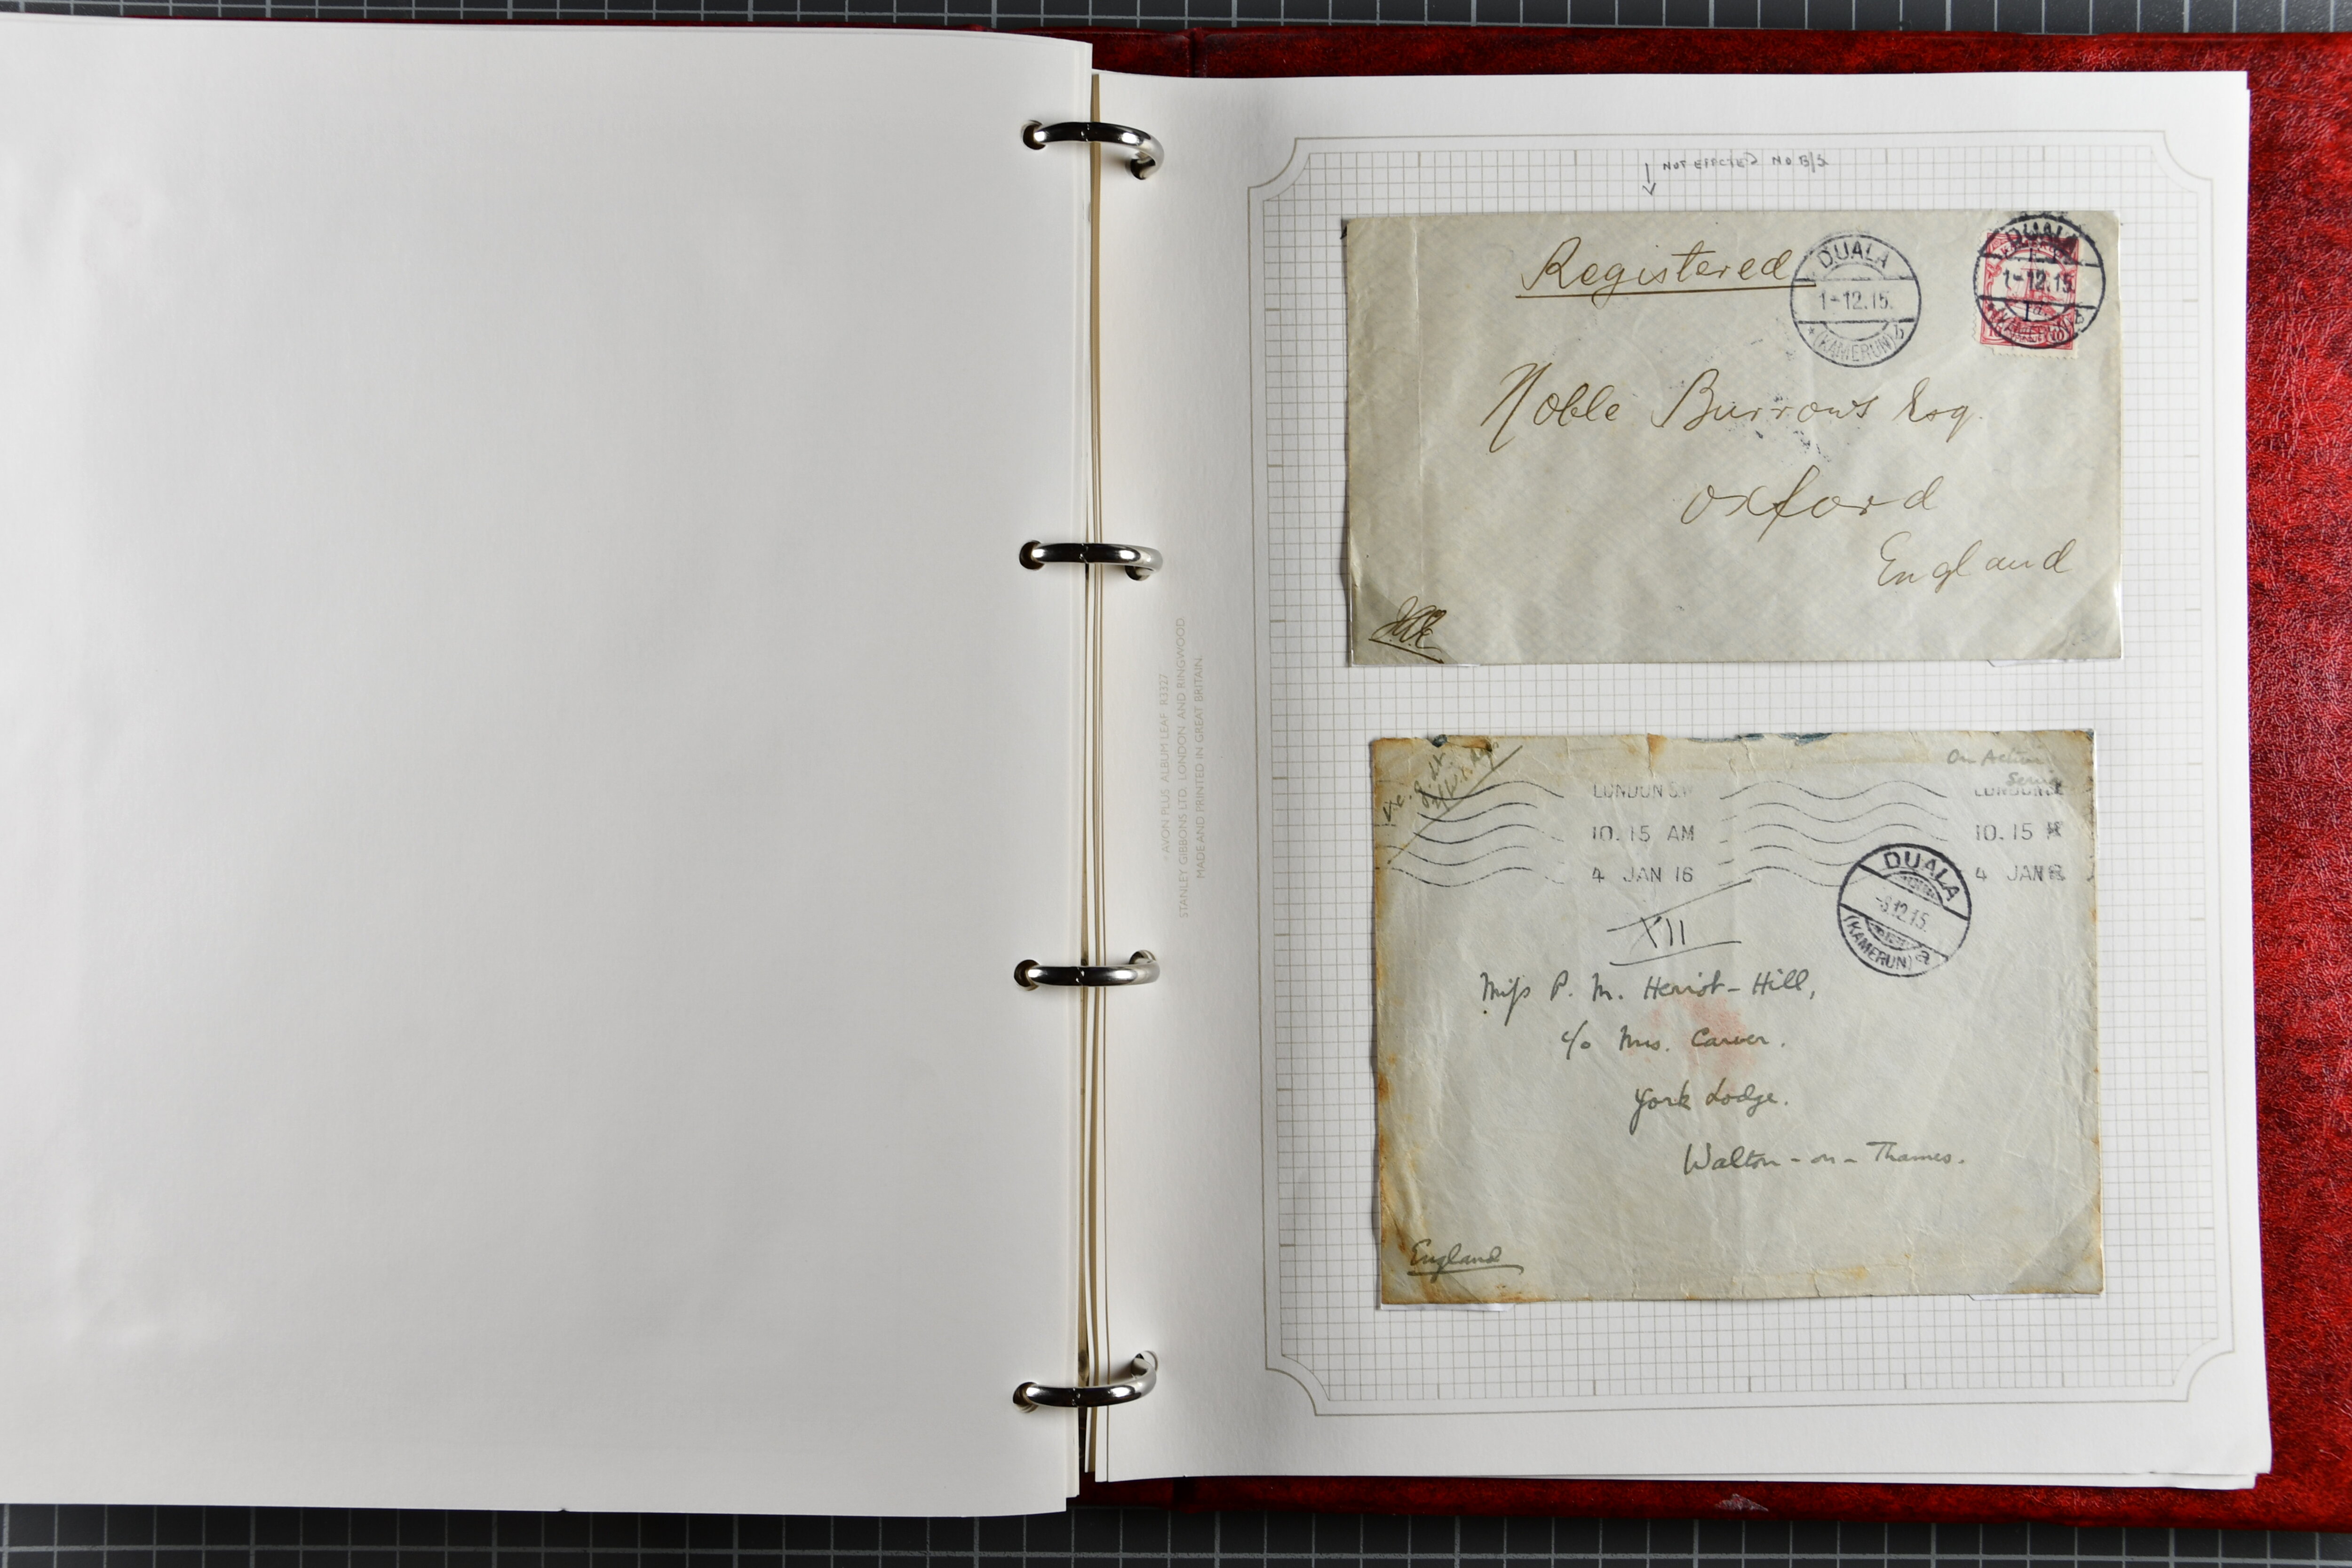 NOT EFFECTED NO B/S
Registered
DUALA
1-12.15.
(KAMERUN) b
DUALA
1-12.15.
(KAMERUN) b
Noble Burrows Esq.
Oxford
England
AVON PLUS ALBUM LEAF R3327
STANLEY GIBBONS LTD. LONDON AND RINGWOOD
MADE AND PRINTED IN GREAT BRITAIN.
On Active
Service
LONDON S.W
10.15 AM
4 JAN 16
10.15
4 JAN
DUALA
12.15.
(KAMERUN) a
XII
Miss P. M. Herriot-Hill,
c/o Mrs. Carver.
York Lodge.
Walton-on-Thames.
England